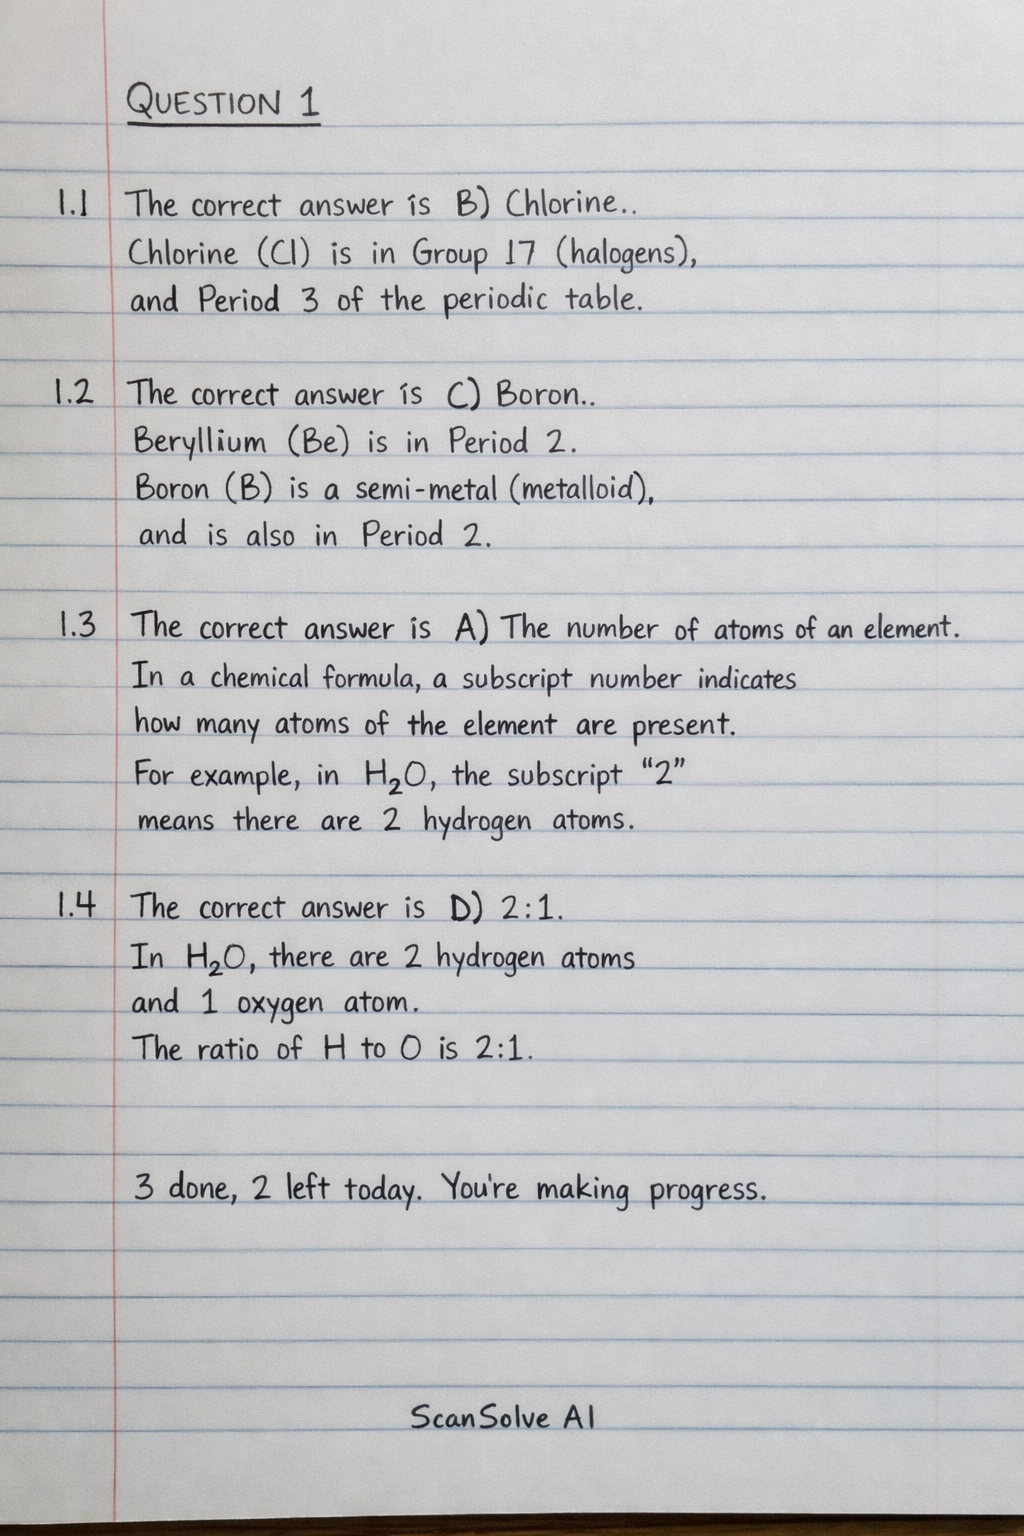 QUESTION 1
1.1 The correct answer is B) Chlorine..
Chlorine (Cl) is in Group 17 (halogens),
and Period 3 of the periodic table.
1.2 The correct answer is C) Boron..
Beryllium (Be) is in Period 2.
Boron (B) is a semi-metal (metalloid),
and is also in Period 2.
1.3 The correct answer is A) The number of atoms of an element.
In a chemical formula, a subscript number indicates
how many atoms of the element are present.
For example, in H₂O, the subscript “2”
means there are 2 hydrogen atoms.
1.4 The correct answer is D) 2:1.
In H₂O, there are 2 hydrogen atoms
and 1 oxygen atom.
The ratio of H to O is 2:1.
3 done, 2 left today. You're making progress.
ScanSolve AI